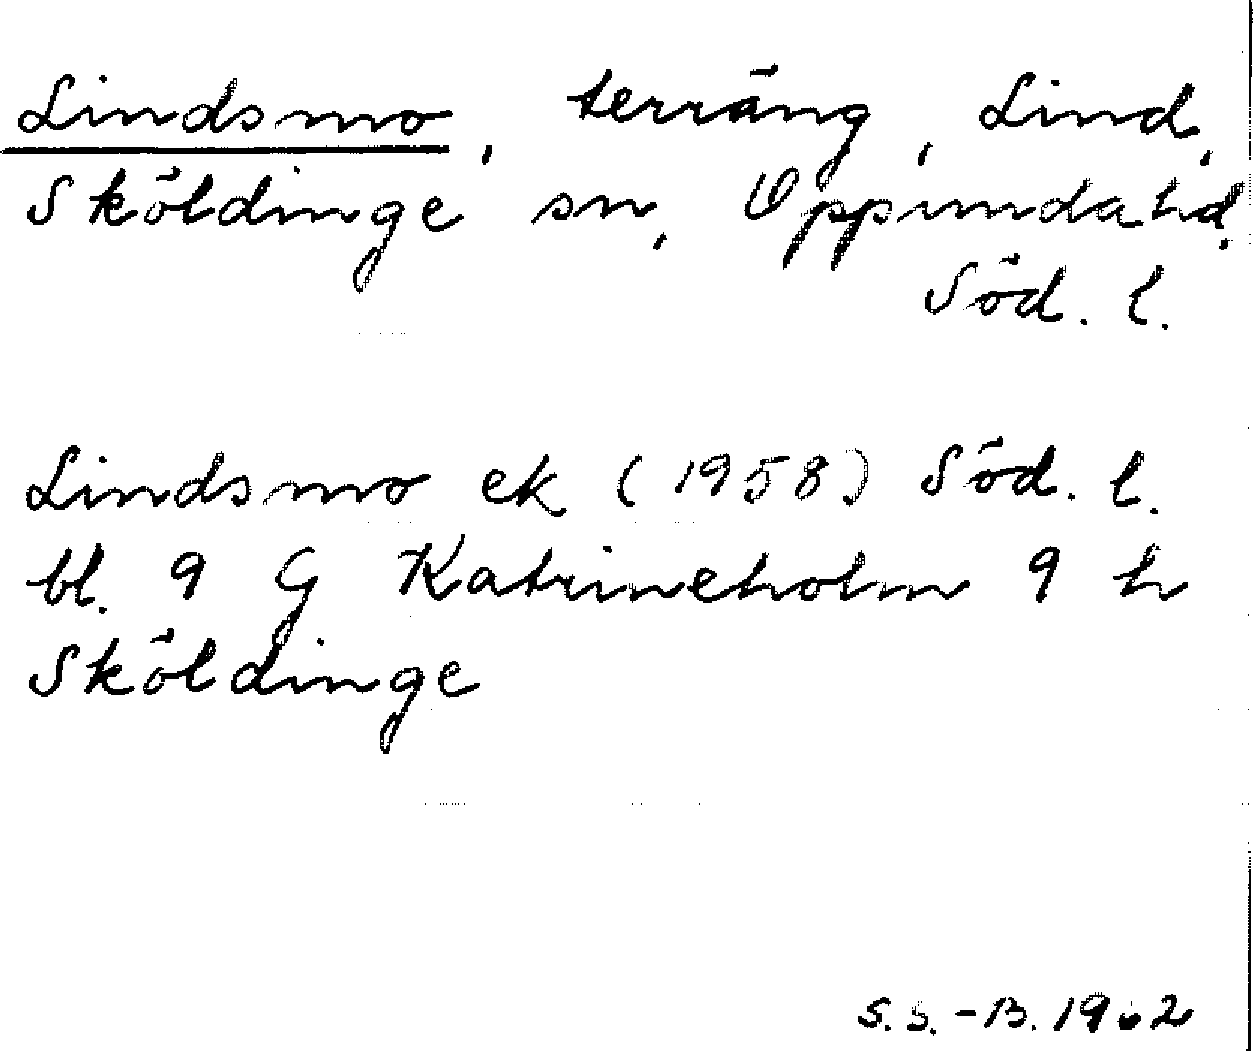 Lindsmo, terräng, Lind,
Sköldinge sn, Oppunda hd,
Söd. l.
Lindsmo ek (1958) Söd. l.
bl. 9 G Katrineholm 9 h
Sköldinge
S.S.-B. 1962